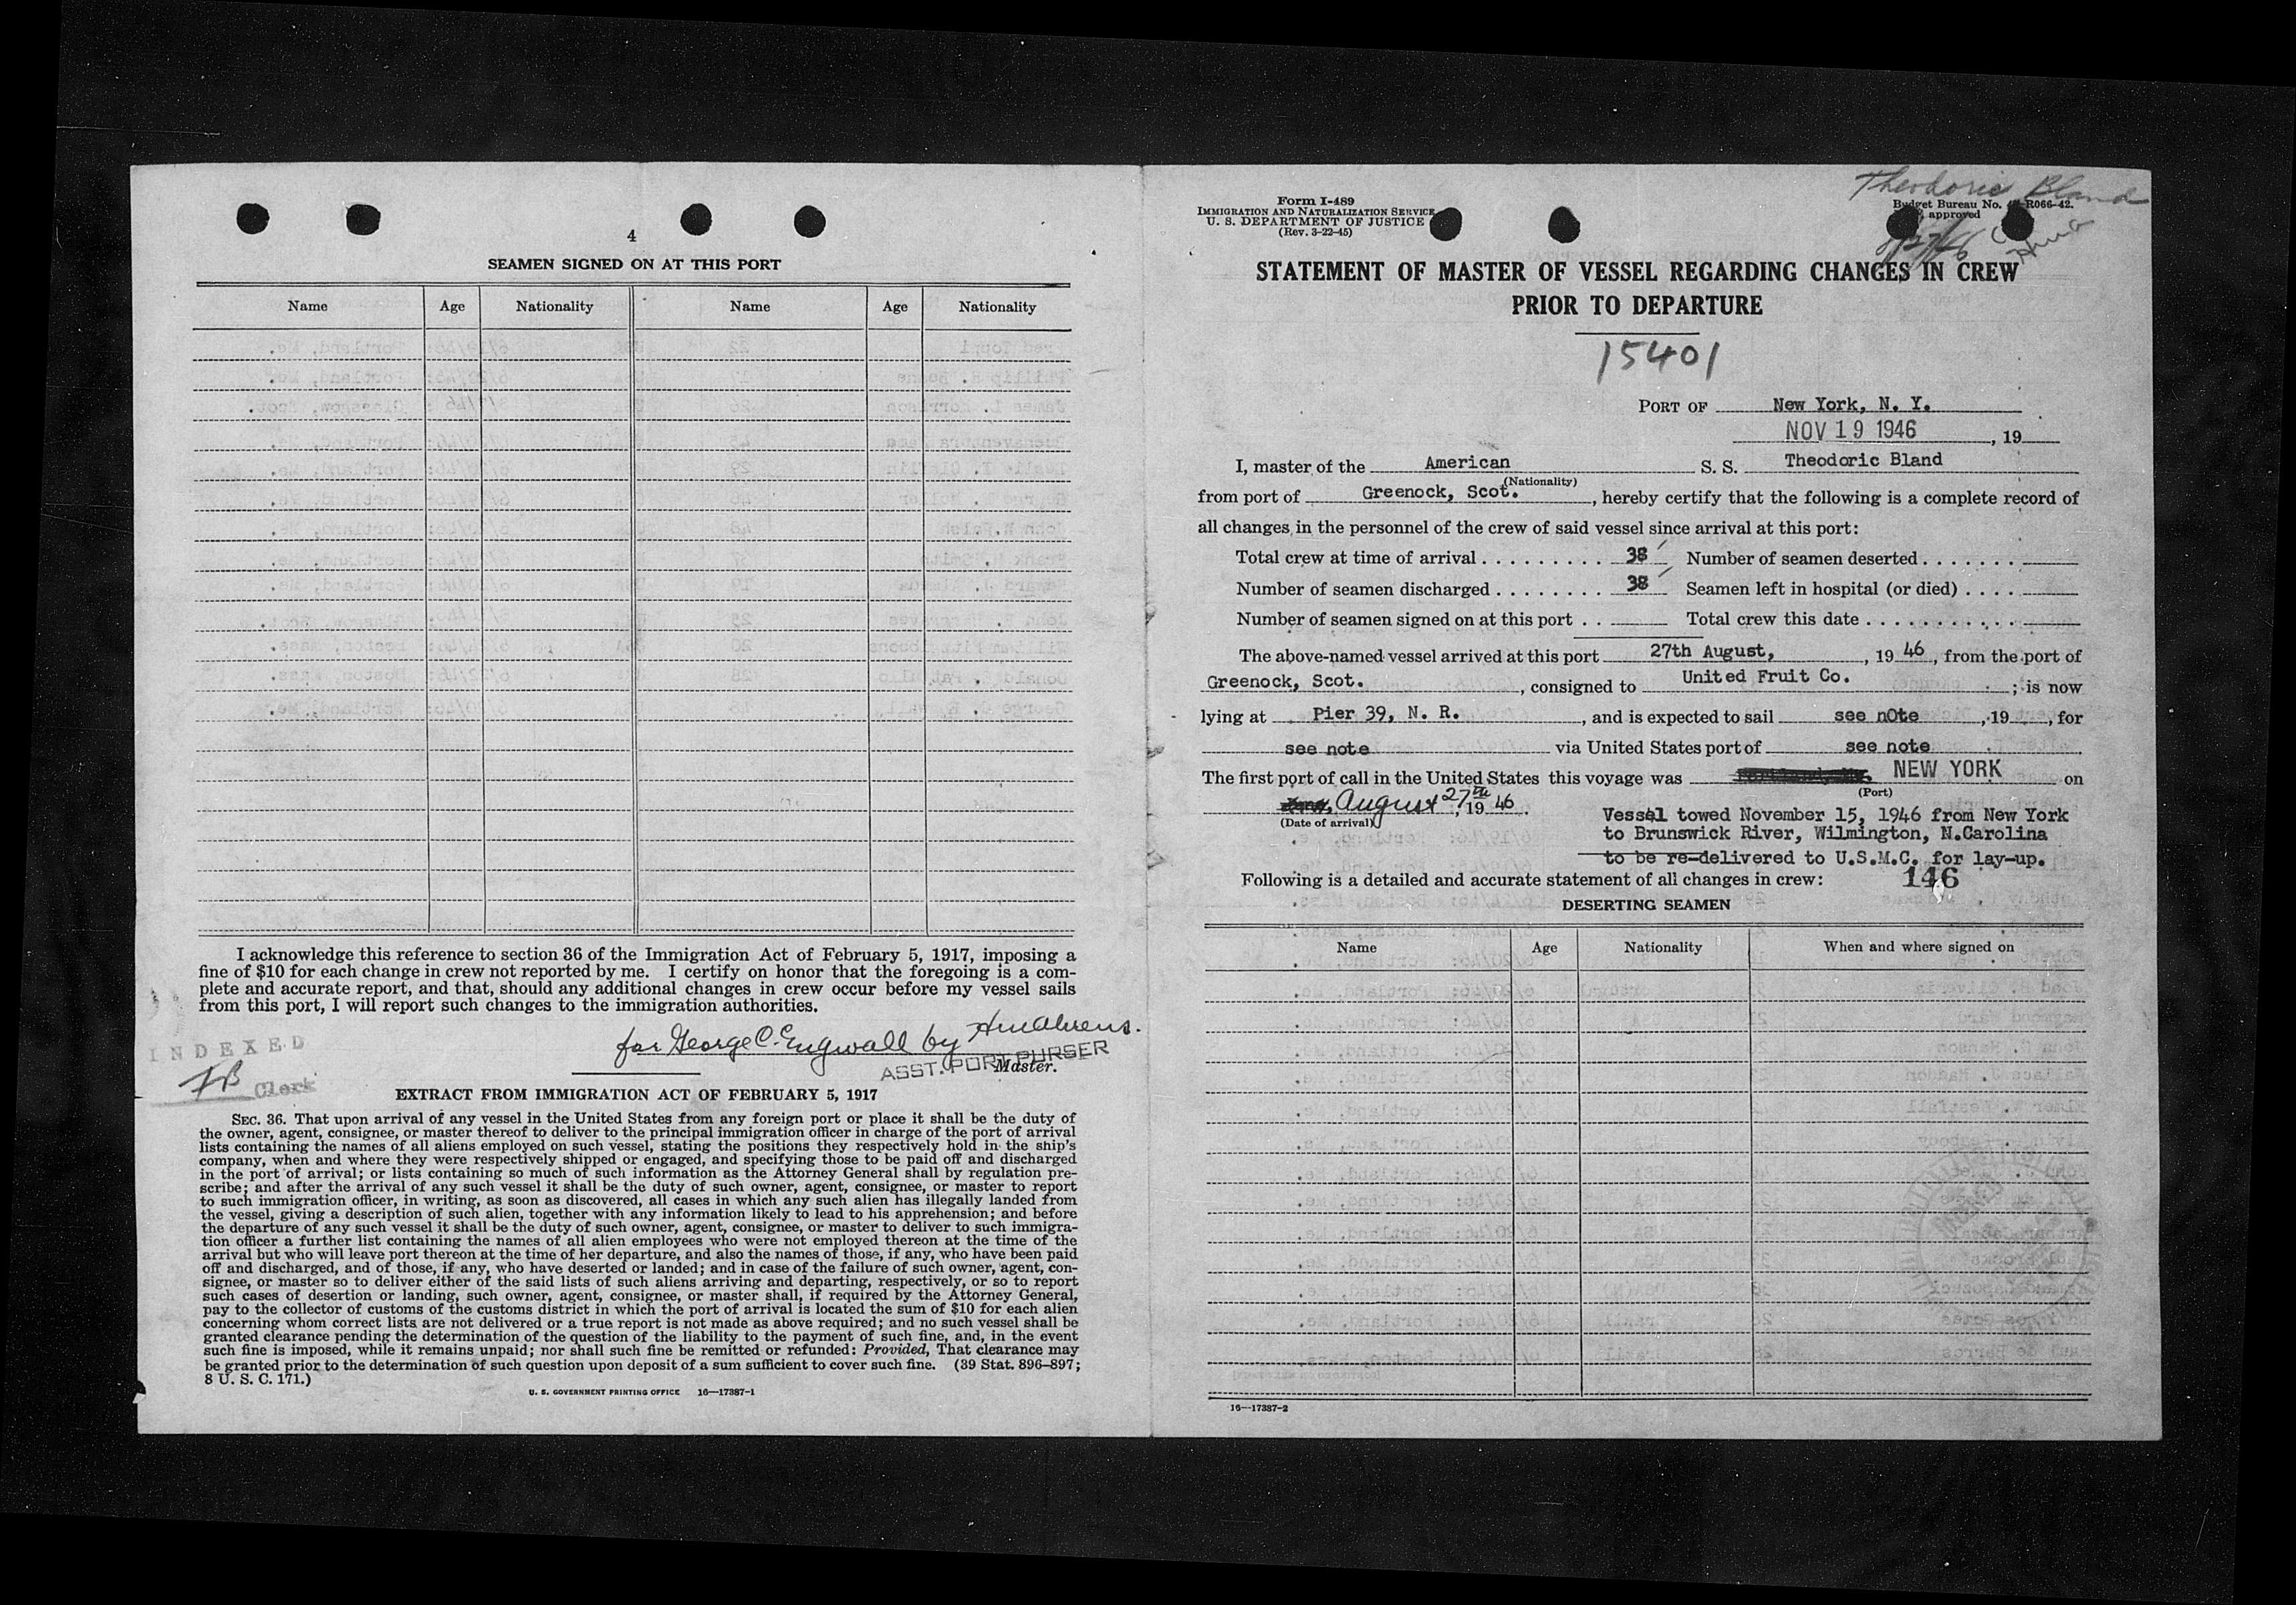 4
SEAMEN SIGNED ON AT THIS PORT
Name Age Nationality Name Age Nationality
I acknowledge this reference to section 36 of the Immigration Act of February 5, 1917, imposing a
fine of $10 for each change in crew not reported by me. I certify on honor that the foregoing is a com-
plete and accurate report, and that, should any additional changes in crew occur before my vessel sails
from this port, I will report such changes to the immigration authorities.
for George C. Engwall by HmAhrens.
ASST. PORT PURSER
Master.
INDEXED
Clerk
EXTRACT FROM IMMIGRATION ACT OF FEBRUARY 5, 1917
SEC. 36. That upon arrival of any vessel in the United States from any foreign port or place it shall be the duty of
the owner, agent, consignee, or master thereof to deliver to the principal immigration officer in charge of the port of arrival
lists containing the names of all aliens employed on such vessel, stating the positions they respectively hold in the ship's
company, when and where they were respectively shipped or engaged, and specifying those to be paid off and discharged
in the port of arrival; or lists containing so much of such information as the Attorney General shall by regulation pre-
scribe; and after the arrival of any such vessel it shall be the duty of such owner, agent, consignee, or master to report
to such immigration officer, in writing, as soon as discovered, all cases in which any such alien has illegally landed from
the vessel, giving a description of such alien, together with any information likely to lead to his apprehension; and before
the departure of any such vessel it shall be the duty of such owner, agent, consignee, or master to deliver to such immigra-
tion officer a further list containing the names of all alien employees who were not employed thereon at the time of the
arrival but who will leave port thereon at the time of her departure, and also the names of those, if any, who have been paid
off and discharged, and of those, if any, who have deserted or landed; and in case of the failure of such owner, agent, con-
signee, or master so to deliver either of the said lists of such aliens arriving and departing, respectively, or so to report
such cases of desertion or landing, such owner, agent, consignee, or master shall, if required by the Attorney General,
pay to the collector of customs of the customs district in which the port of arrival is located the sum of $10 for each alien
concerning whom correct lists are not delivered or a true report is not made as above required; and no such vessel shall be
granted clearance pending the determination of the question of the liability to the payment of such fine, and, in the event
such fine is imposed, while it remains unpaid; nor shall such fine be remitted or refunded: Provided, That clearance may
be granted prior to the determination of such question upon deposit of a sum sufficient to cover such fine. (39 Stat. 896–897;
8 U. S. C. 171.)
U. S. GOVERNMENT PRINTING OFFICE 16—17387-1
Form I-489
IMMIGRATION AND NATURALIZATION SERVICE
U. S. DEPARTMENT OF JUSTICE
(Rev. 3-22-45)
Theodoric Bland
Budget Bureau No. R066-42.
approved
8/27/46
STATEMENT OF MASTER OF VESSEL REGARDING CHANGES IN CREW
PRIOR TO DEPARTURE
15401
PORT OF New York, N. Y.
NOV 19 1946, 19
I, master of the American S. S. Theodoric Bland
(Nationality)
from port of Greenock, Scot., hereby certify that the following is a complete record of
all changes in the personnel of the crew of said vessel since arrival at this port:
Total crew at time of arrival . . . . . . . . . 38 Number of seamen deserted . . . . . . .
Number of seamen discharged . . . . . . . . 38 Seamen left in hospital (or died) . . . .
Number of seamen signed on at this port . . Total crew this date . . . . . . . . . . .
The above-named vessel arrived at this port 27th August, , 19 46, from the port of
Greenock, Scot. , consigned to United Fruit Co. ; is now
lying at Pier 39, N. R. , and is expected to sail see nOte , 19 , for
see note via United States port of see note
The first port of call in the United States this voyage was NEW YORK on
(Port)
August 27th, 19 46.
(Date of arrival)
Vessel towed November 15, 1946 from New York
to Brunswick River, Wilmington, N.Carolina
to be re-delivered to U.S.M.C. for lay-up.
Following is a detailed and accurate statement of all changes in crew: 146
DESERTING SEAMEN
Name Age Nationality When and where signed on
16—17387-2